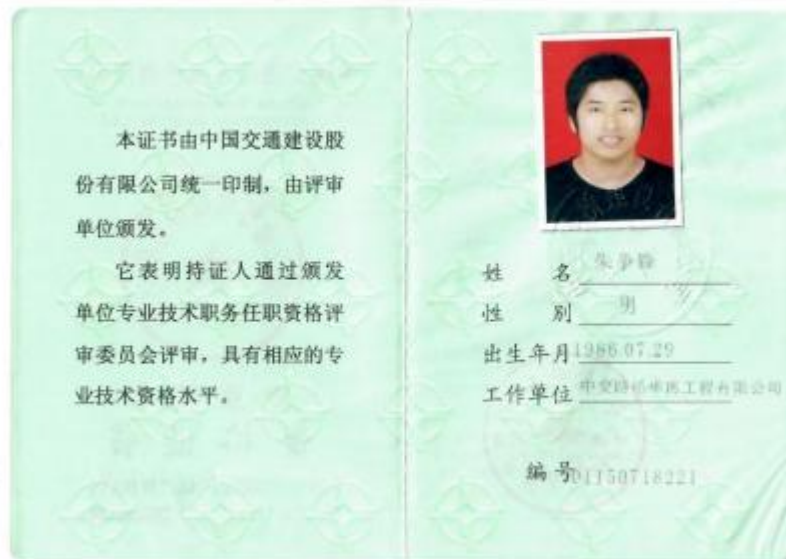 本证书由中国交通建设股
份有限公司统一印制，由评审
单位颁发。
它表明持证人通过颁发
单位专业技术职务任职资格评
审委员会评审，具有相应的专
业技术资格水平。
姓 名 朱争
性 别 男
出生年月 1986.07.29
工作单位 中交路桥华南工程有限公司
编号 01150718221